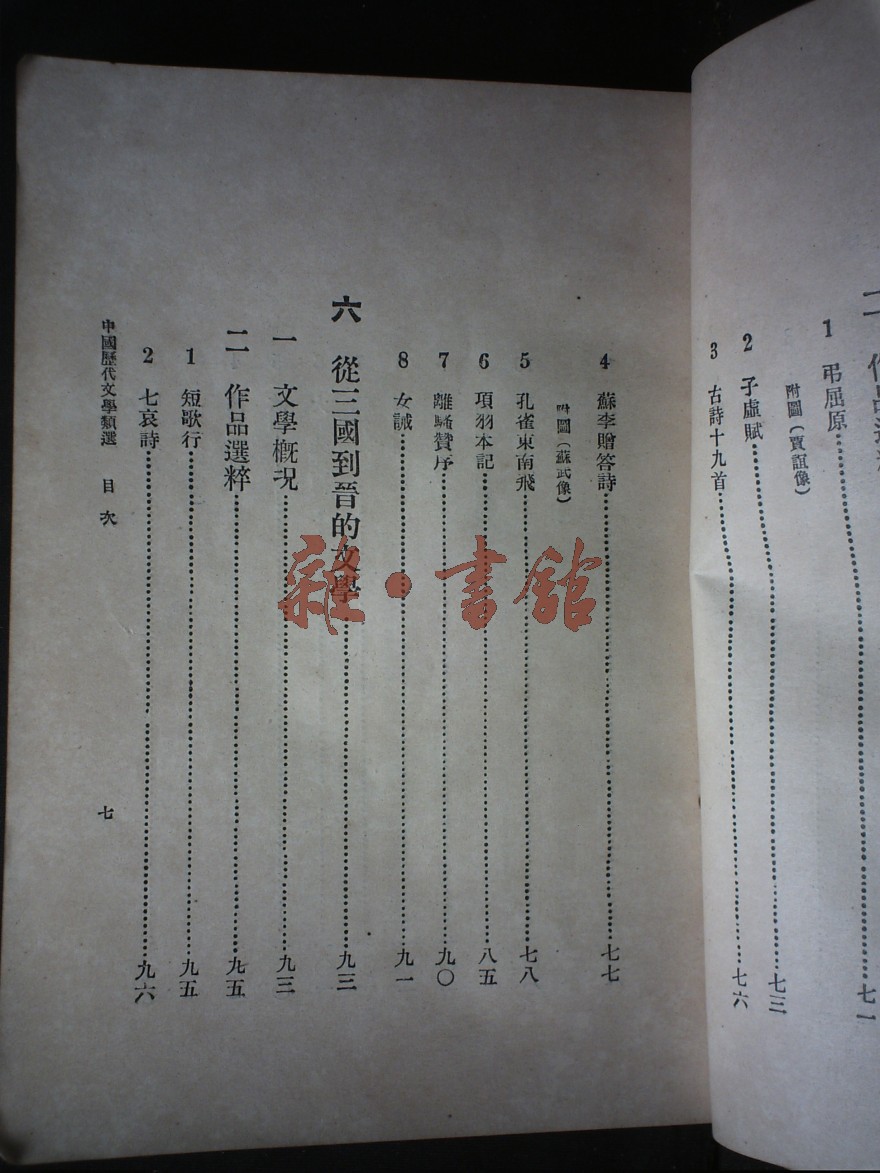 二 作品選粹
1 弔屈原……七一
附圖（賈誼像）
2 子虛賦……七三
3 古詩十九首……七六
4 蘇李贈答詩……七七
附圖（蘇武像）
5 孔雀東南飛……七八
6 項羽本記……八五
7 離騷贊序……九〇
8 女誡……九一
六 從三國到晉的文學……九三
一 文學概況……九三
二 作品選粹……九五
1 短歌行……九五
2 七哀詩……九六
中國歷代文學類選 目次 七
雜·書館